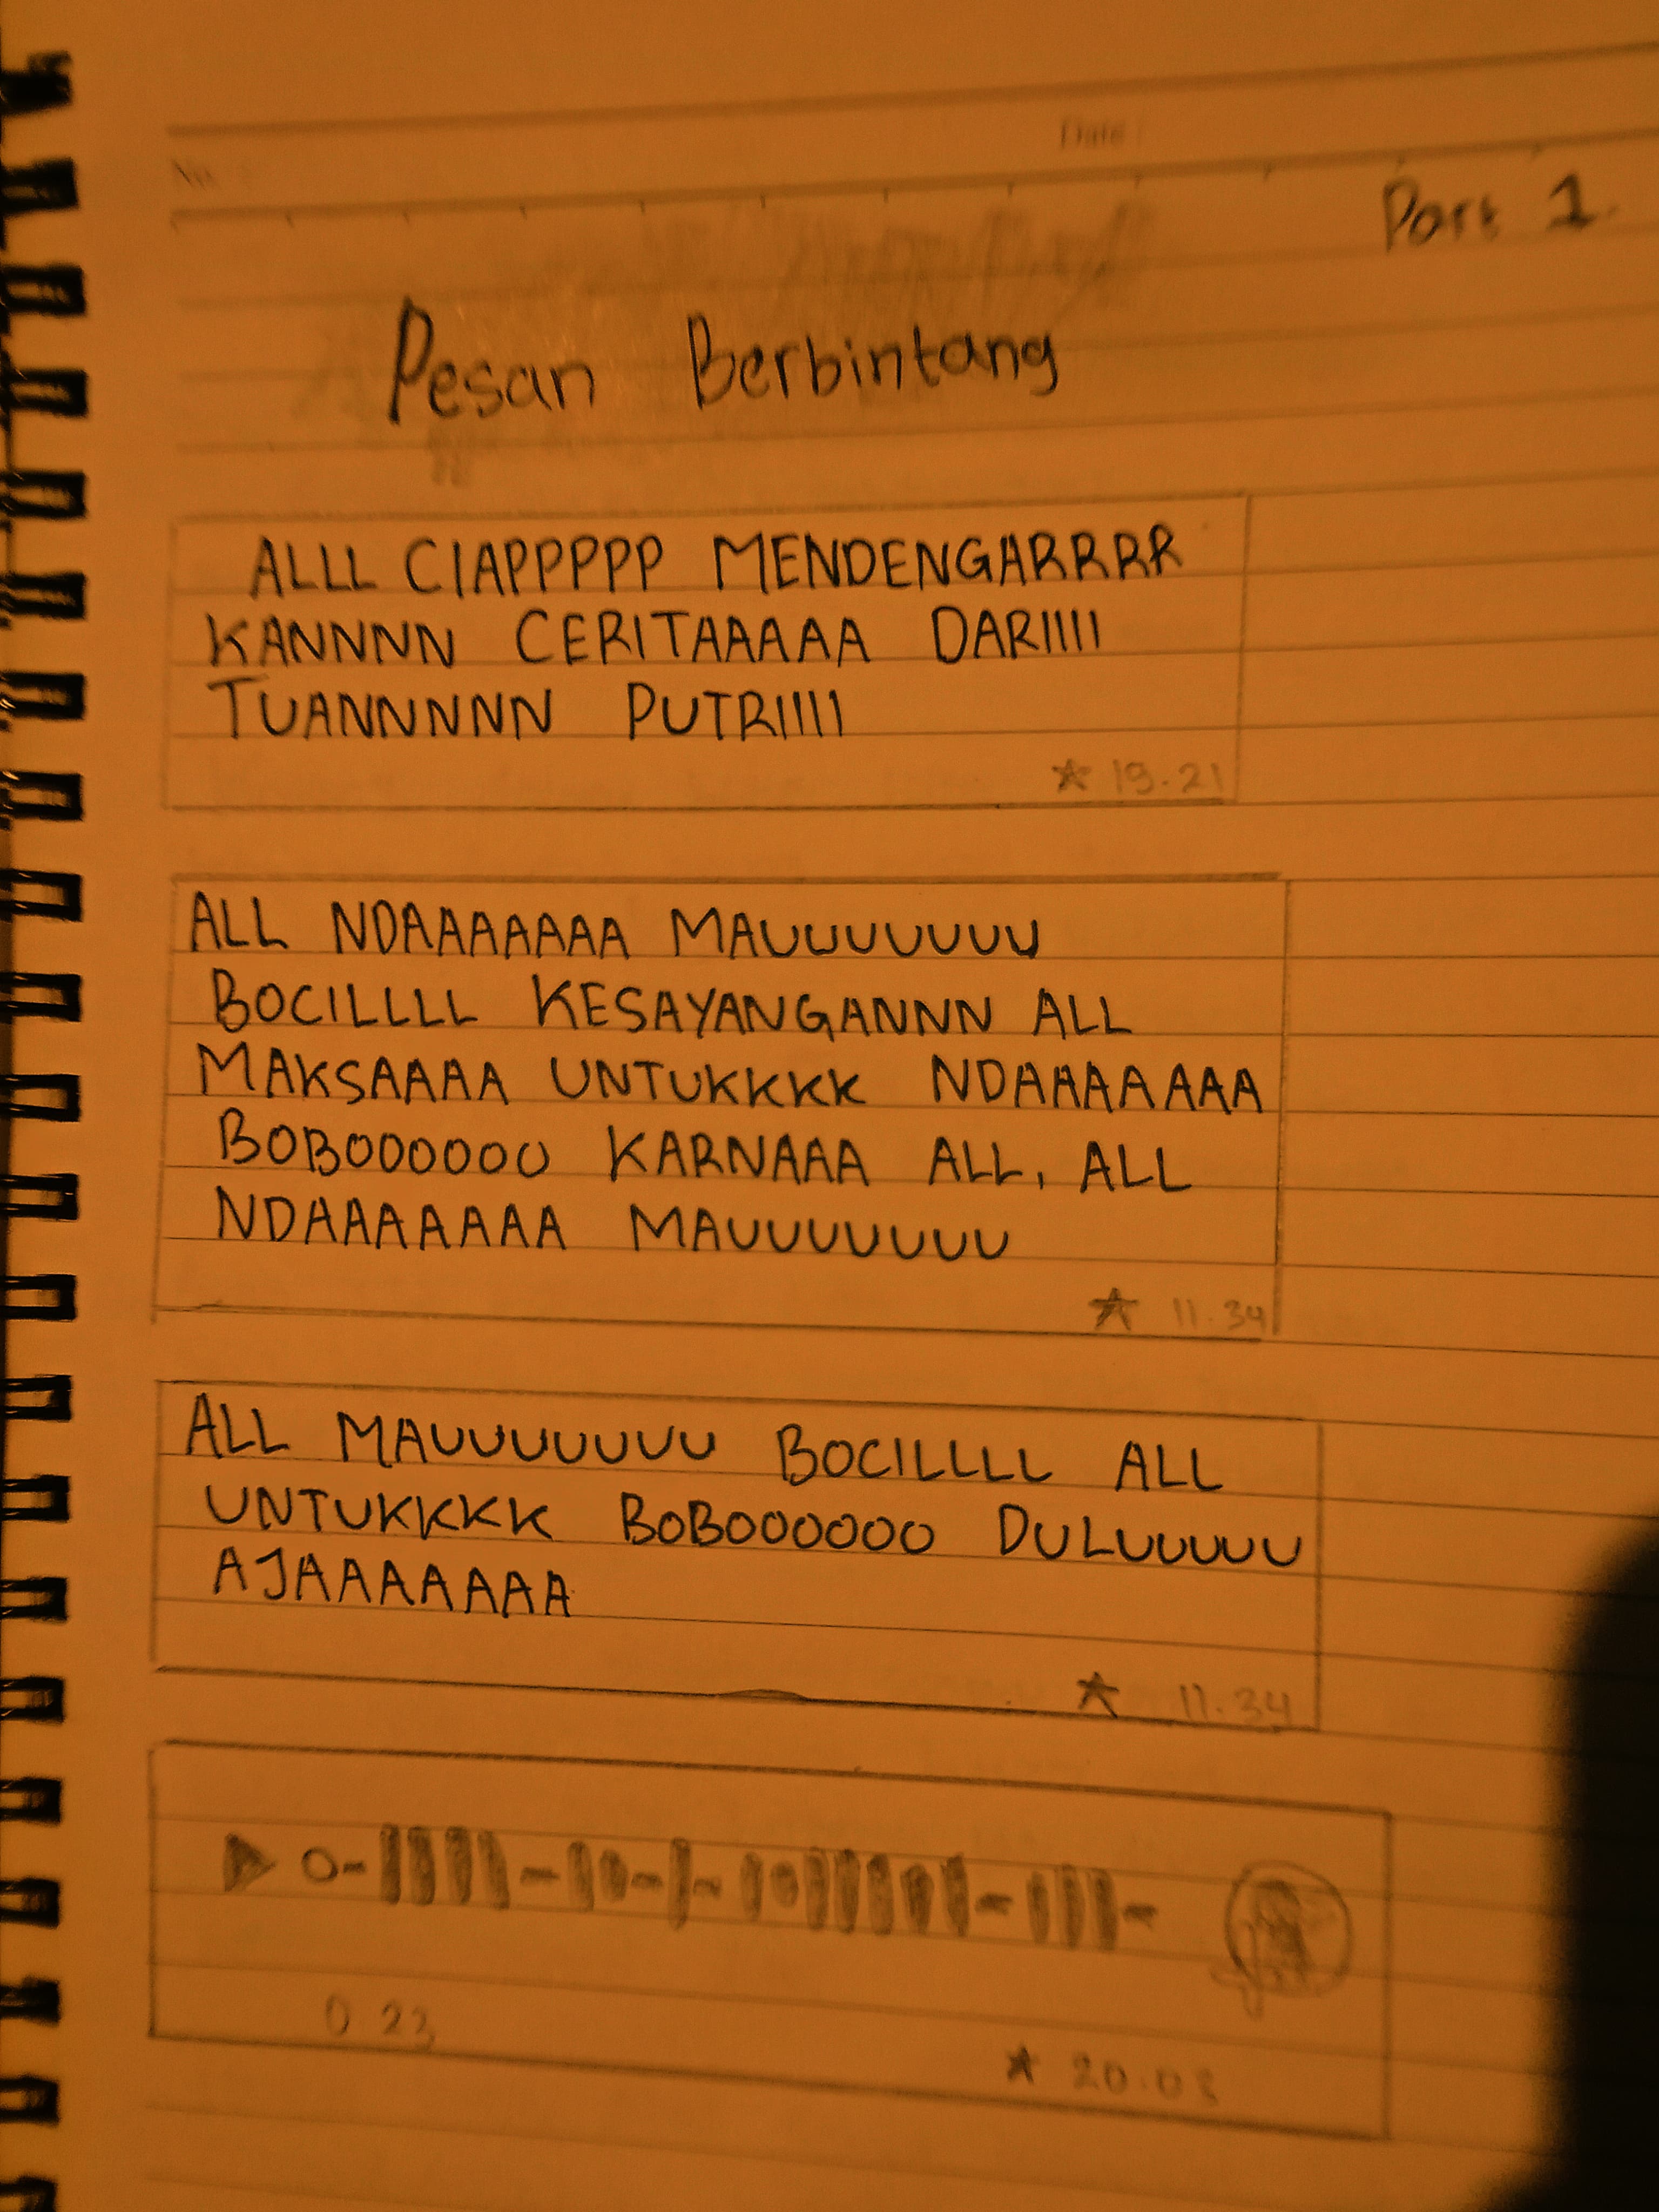 No :
Date :
Part 1
Pesan Berbintang
ALLL CIAPPPPP MENDENGARRRR
KANNNN CERITAAAAA DARIIII
TUANNNNN PUTRIIII
★ 19.21
ALL NDAAAAAAA MAUUUUUUUU
BOCILLLL KESAYANGANNN ALL
MAKSAAAA UNTUKKKK NDAAAAAAA
BOBOOOOOO KARNAAA ALL, ALL
NDAAAAAAA MAUUUUUUUU
★ 11.34
ALL MAUUUUUUUU BOCILLLL ALL
UNTUKKKK BOBOOOOOO DULUUUUU
AJAAAAAAA
★ 11.34
0 23
★ 20.08